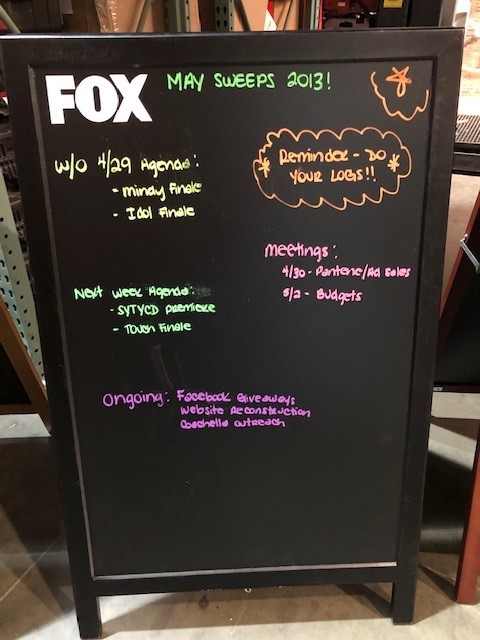 FOX MAY SWEEPS 2013!
Reminder - DO
YOUR LOGS!!
W/O 4/29 Agenda:
- Mindy Finale
- Idol Finale
Meetings:
4/30 - Pantene/Ad Sales
5/2 - Budgets
Next Week Agenda:
- SYTYCD Premiere
- Touch Finale
Ongoing: Facebook Giveaways
Website Reconstruction
Coachella Outreach